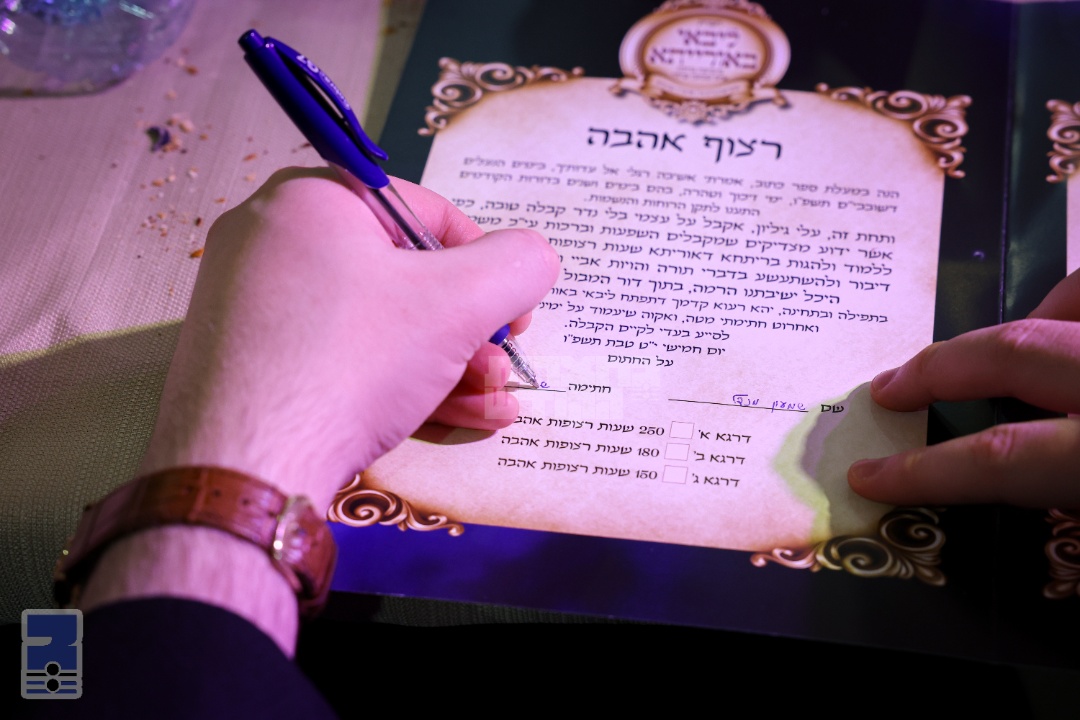 ליבאי
באורייתא
רצוף אהבה
הנה במעלת ספר כתוב, אמרתי אשיבה רגלי אל עדותיך, בימים הנעלים
דשובבי"ם תשפ"ו, ימי זיכוך וטהרה, בהם בימים ושנים בדורות הקודמים
התענו לתקן הרוחות והנשמות.
ותחת זה, עלי גיליון, אקבל על עצמי בלי נדר קבלה טובה, כפי
אשר ידוע מצדיקים שמקבלים השפעות וברכות ע"כ
ללמוד ולהגות בריתחא דאורייתא שעות רצופות
דיבור ולהשתעשע בדברי תורה והויות אביי
היכל ישיבתנו הרמה, בתוך דור המבול
בתפילה ובתחינה, יהא רעוא קדמך דתפתח ליבאי
ואחרוט חתימתי מטה, ואקוה שיעמוד על ימיני
לסייע בעדי לקיים הקבלה.
יום חמישי י"ט טבת תשפ"ו
על החתום
שם שמעון חתימה
דרגא א' 250 שעות רצופות
דרגא ב' 180 שעות רצופות אהבה
דרגא ג' 150 שעות רצופות אהבה